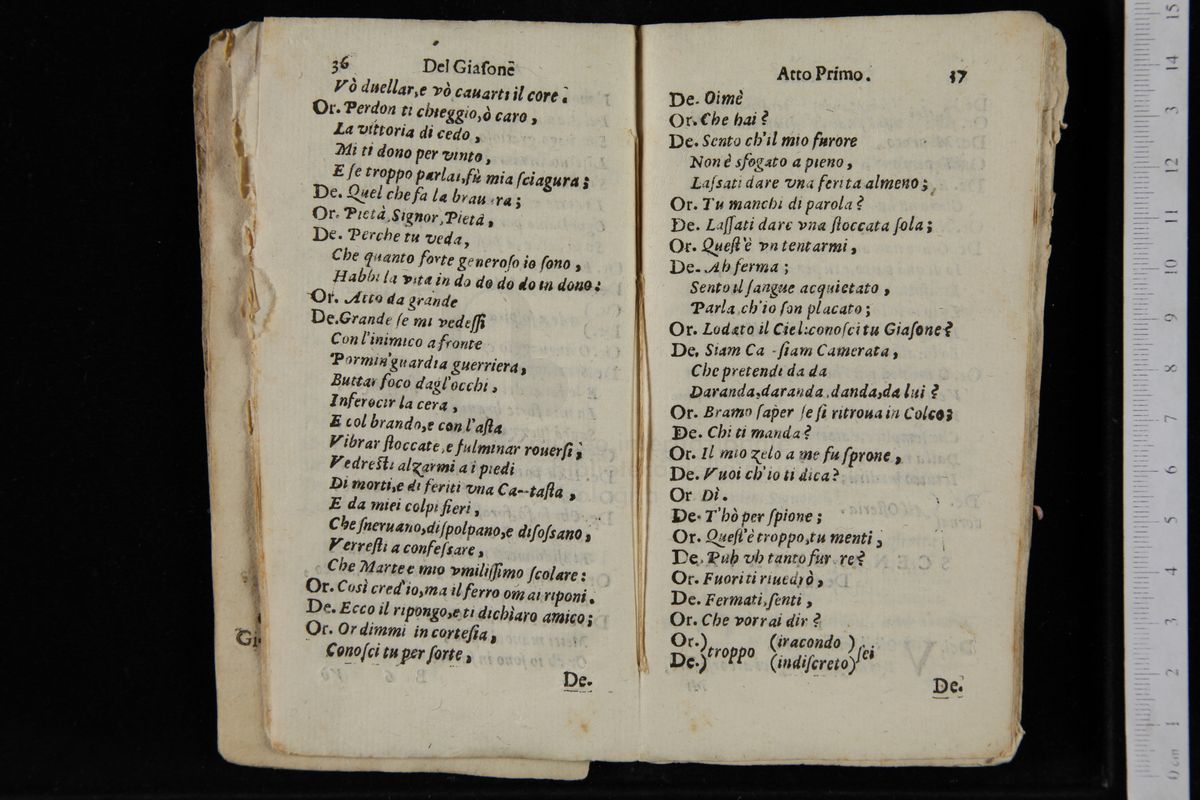 36 Del Giaſone
Vò duellar,e vò cauarti il core.
Or. Perdon ti chieggio,ò caro,
La vittoria di cedo,
Mi ti dono per vinto,
E ſe troppo parlai,fù mia ſciagura;
De. Quel che fa la
Or. Pietà,Signor,Pietà,
De. Perche tu veda,
Che quanto forte generoſo io ſono,
Habbi la vita in do do do do in dono:
Or. Atto da grande
De.Grande ſe mi vedeſſi
Con l'inimico a fronte
Pormin'guardia guerriera,
Buttar foco dagl'occhi,
Inferocir la cera,
E col brando,e con l'aſta
Vibrar ſtoccate,e fulminar rouerſi;
Vedreſti alzarmi a i piedi
Di morti,e di feriti vna Ca--taſta,
E da miei colpi fieri,
Che ſneruano,diſpolpano,e diſoſsano,
Verreſti a confeſsare,
Che Marte e mio vmiliſſimo ſcolare:
Or. Così cred'io,ma il ferro omai riponi.
De. Ecco il ripongo,e ti dichiaro amico;
Or. Or dimmi in corteſia,
Conoſci tu per ſorte,
De.
Atto Primo. 37
De. Oimè
Or. Che hai?
De. Sento ch'il mio furore
Non è sfogato a pieno,
Laſsati dare vna ferita almeno;
Or. Tu manchi di parola?
De. Laſſati dare vna ſtoccata ſola;
Or. Queſt'è vn tentarmi,
De. Ah ferma;
Sento il ſangue acquietato,
Parla,ch'io ſon placato;
Or. Lodato il Ciel:conoſci tu Giaſone?
De. Siam Ca-ſiam Camerata,
Che pretendi da da
Daranda,daranda,danda,da lui?
Or. Bramo ſaper ſe ſi ritroua in Colco;
De. Chi ti manda?
Or. Il mio zelo a me fu ſprone,
De. Vuoi ch'io ti dica?
Or Dì.
De. T'hò per ſpione;
Or. Queſt'è troppo,tu menti,
De. Puh vh tanto fur re?
Or. Fuori ti riuedrò,
De. Fermati,ſenti,
Or. Che vorrai dir?
Or.) (iracondo )
troppo ſei
De.) (indiſcreto)
De.